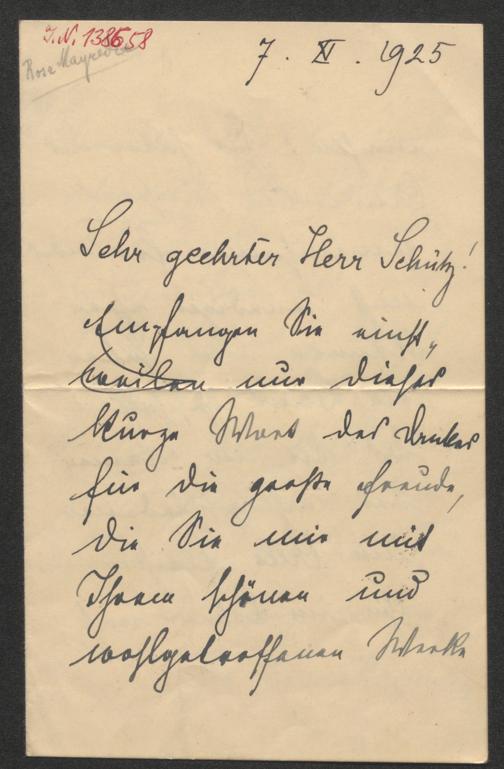 I.N. 138658
Rosa Mayreder
7. XI. 1925
Sehr geehrter Herr Schütz!
Empfangen Sie einst„
weilen nur dieses
kurze Wort des Dankes
für die große Freude,
die Sie mir mit
Ihrem schönen und
wohlgetroffenen Werke